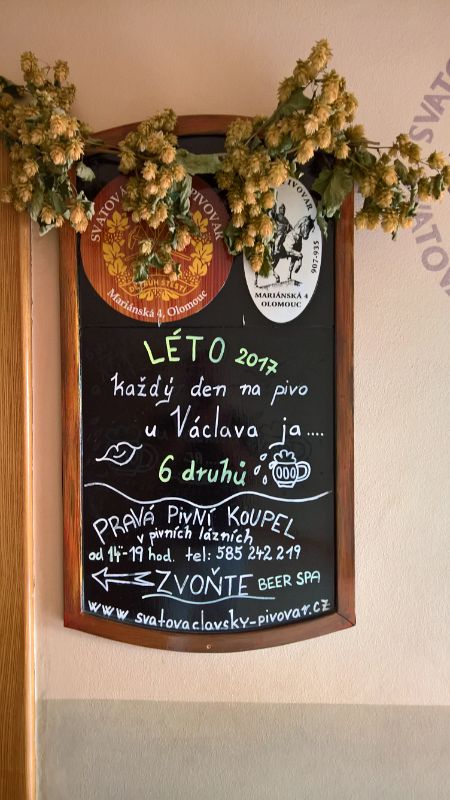 SVATOVÁ PIVOVAR
Mariánská 4, Olomouc
PIVOVAR
907-935
MARIÁNSKÁ 4
OLOMOUC
LÉTO 2017
každý den na pivo
u Václava ja....
6 druhů
PRAVÁ PIVNÍ KOUPEL
v pivních lázních
od 14-19 hod. tel: 585 242 219
ZVOŇTE BEER SPA
www.svatovaclavsky-pivovar.cz
SVATO
SVATOV